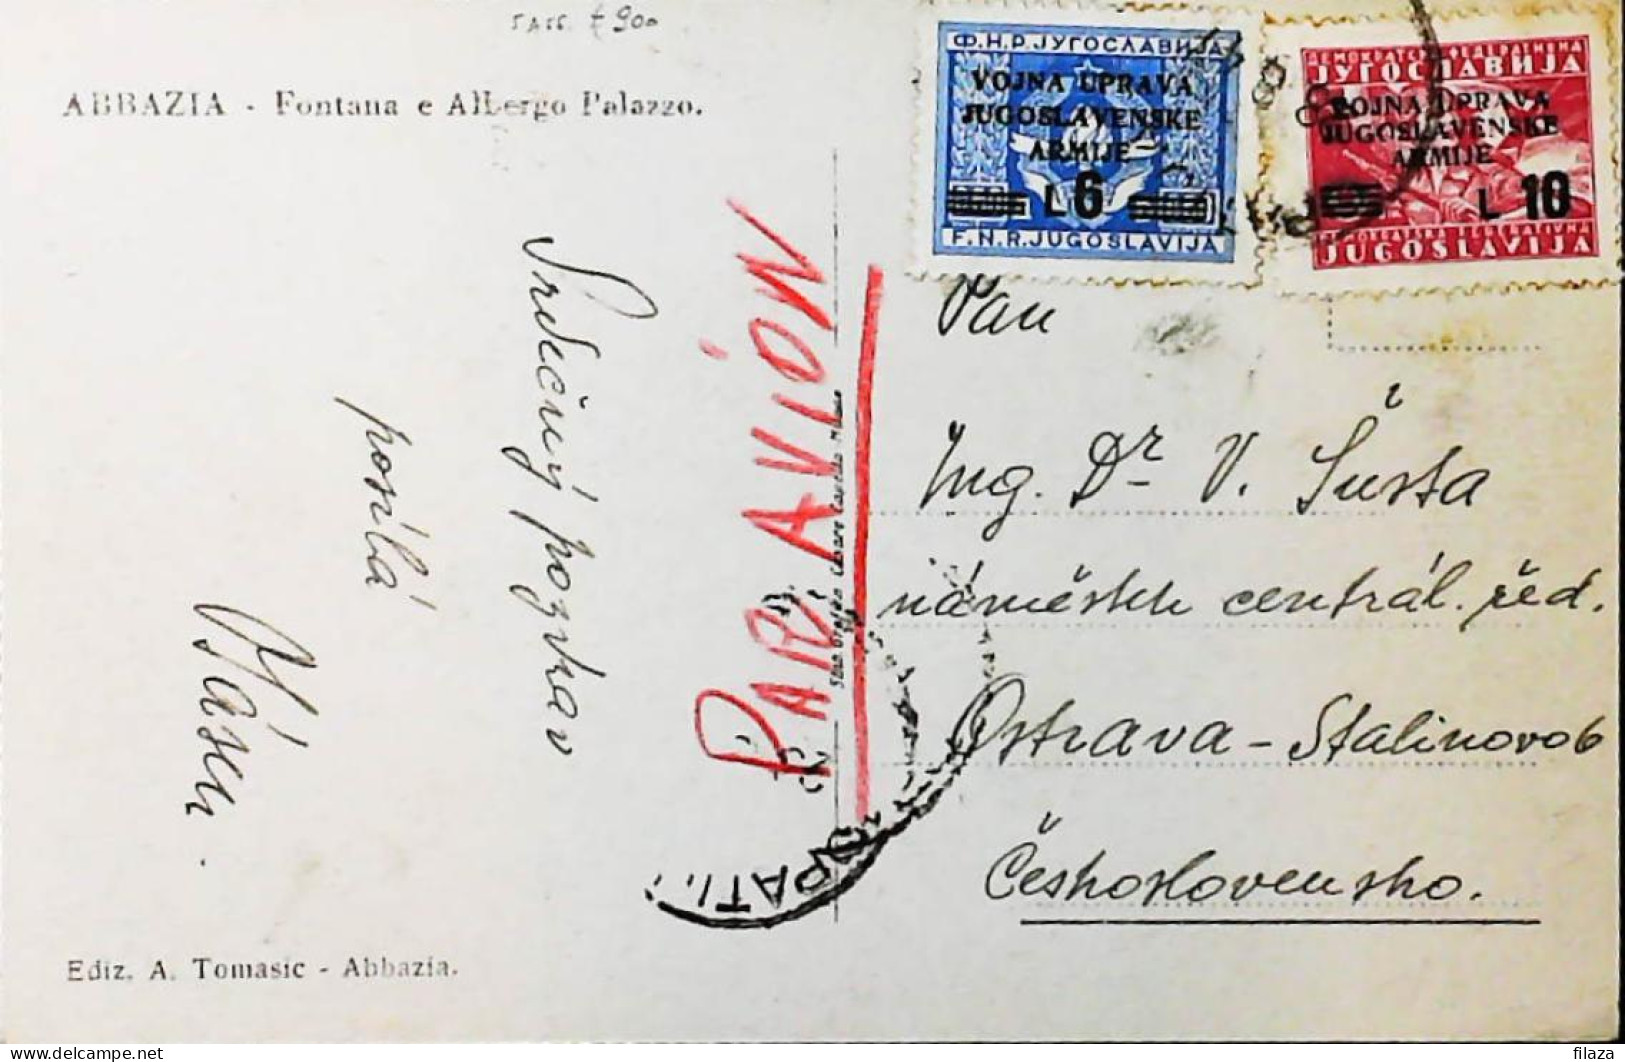 SASS. € 900
ABBAZIA - Fontana e Albergo Palazzo.
Srdečný pozdrav
posílá
Ediz. A. Tomasic - Abbazia.
PAR AVIÓN
Ф.Н.Р. ЈУГОСЛАВИЈА
VOJNA UPRAVA
JUGOSLAVENSKE
ARMIJE
L 6
F.N.R. JUGOSLAVIJA
ЈУГОСЛАВИЈА
VOJNA UPRAVA
JUGOSLAVENSKE
ARMIJE
L 10
JUGOSLAVIJA
Pan
Ing. Dr V. Šusta
náměstek centrál. řed.
Ostrava - Stalinovo 6
Československo.
OPATI
filaza